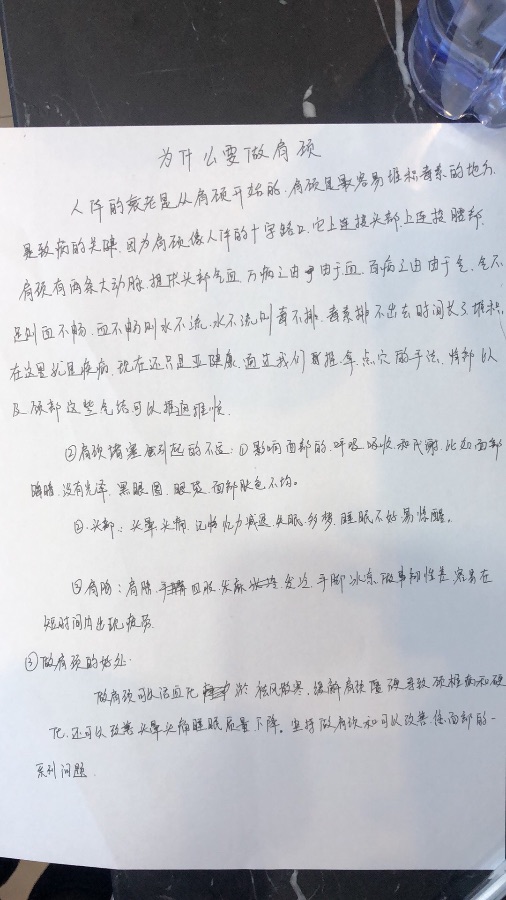 为什么要做肩颈
人体的衰老是从肩颈开始的，肩颈是最容易堆积毒素的地方，
是致病的关键，因为肩颈像人体的十字路口，它上连接头部，上连接腰部，
肩颈有两条大动脉，提供头部气血，万病之由由于血，百病之由由于气，气不
足则血不畅，血不畅则水不流，水不流则毒不排，毒素排不出去时间长了堆积
在这里就是疾病，现在还只是亚健康，通过我们推拿，点穴的手法，将部以
及颈部这些气结可以推通推悦
②肩颈堵塞引起的不适：①影响面部的，呼吸吸收和代谢，比如面部
暗暗，没有光泽，黑眼圈，眼袋，面部肤色不均。
②头部：头晕头痛，记忆力减退，失眠，多梦，睡眠不好易惊醒。
③肩胳：肩膀，四肢发麻发冷，手脚冰凉，做事韧性差，容易在
短时间内出现疲劳
③做肩颈的好处
做肩颈可以活血化瘀祛风散寒，缓解肩颈僵硬导致颈椎病和硬
化，还可以改善头晕头痛睡眠质量下降。坚持做肩颈和可以改善体面部的一
系列问题